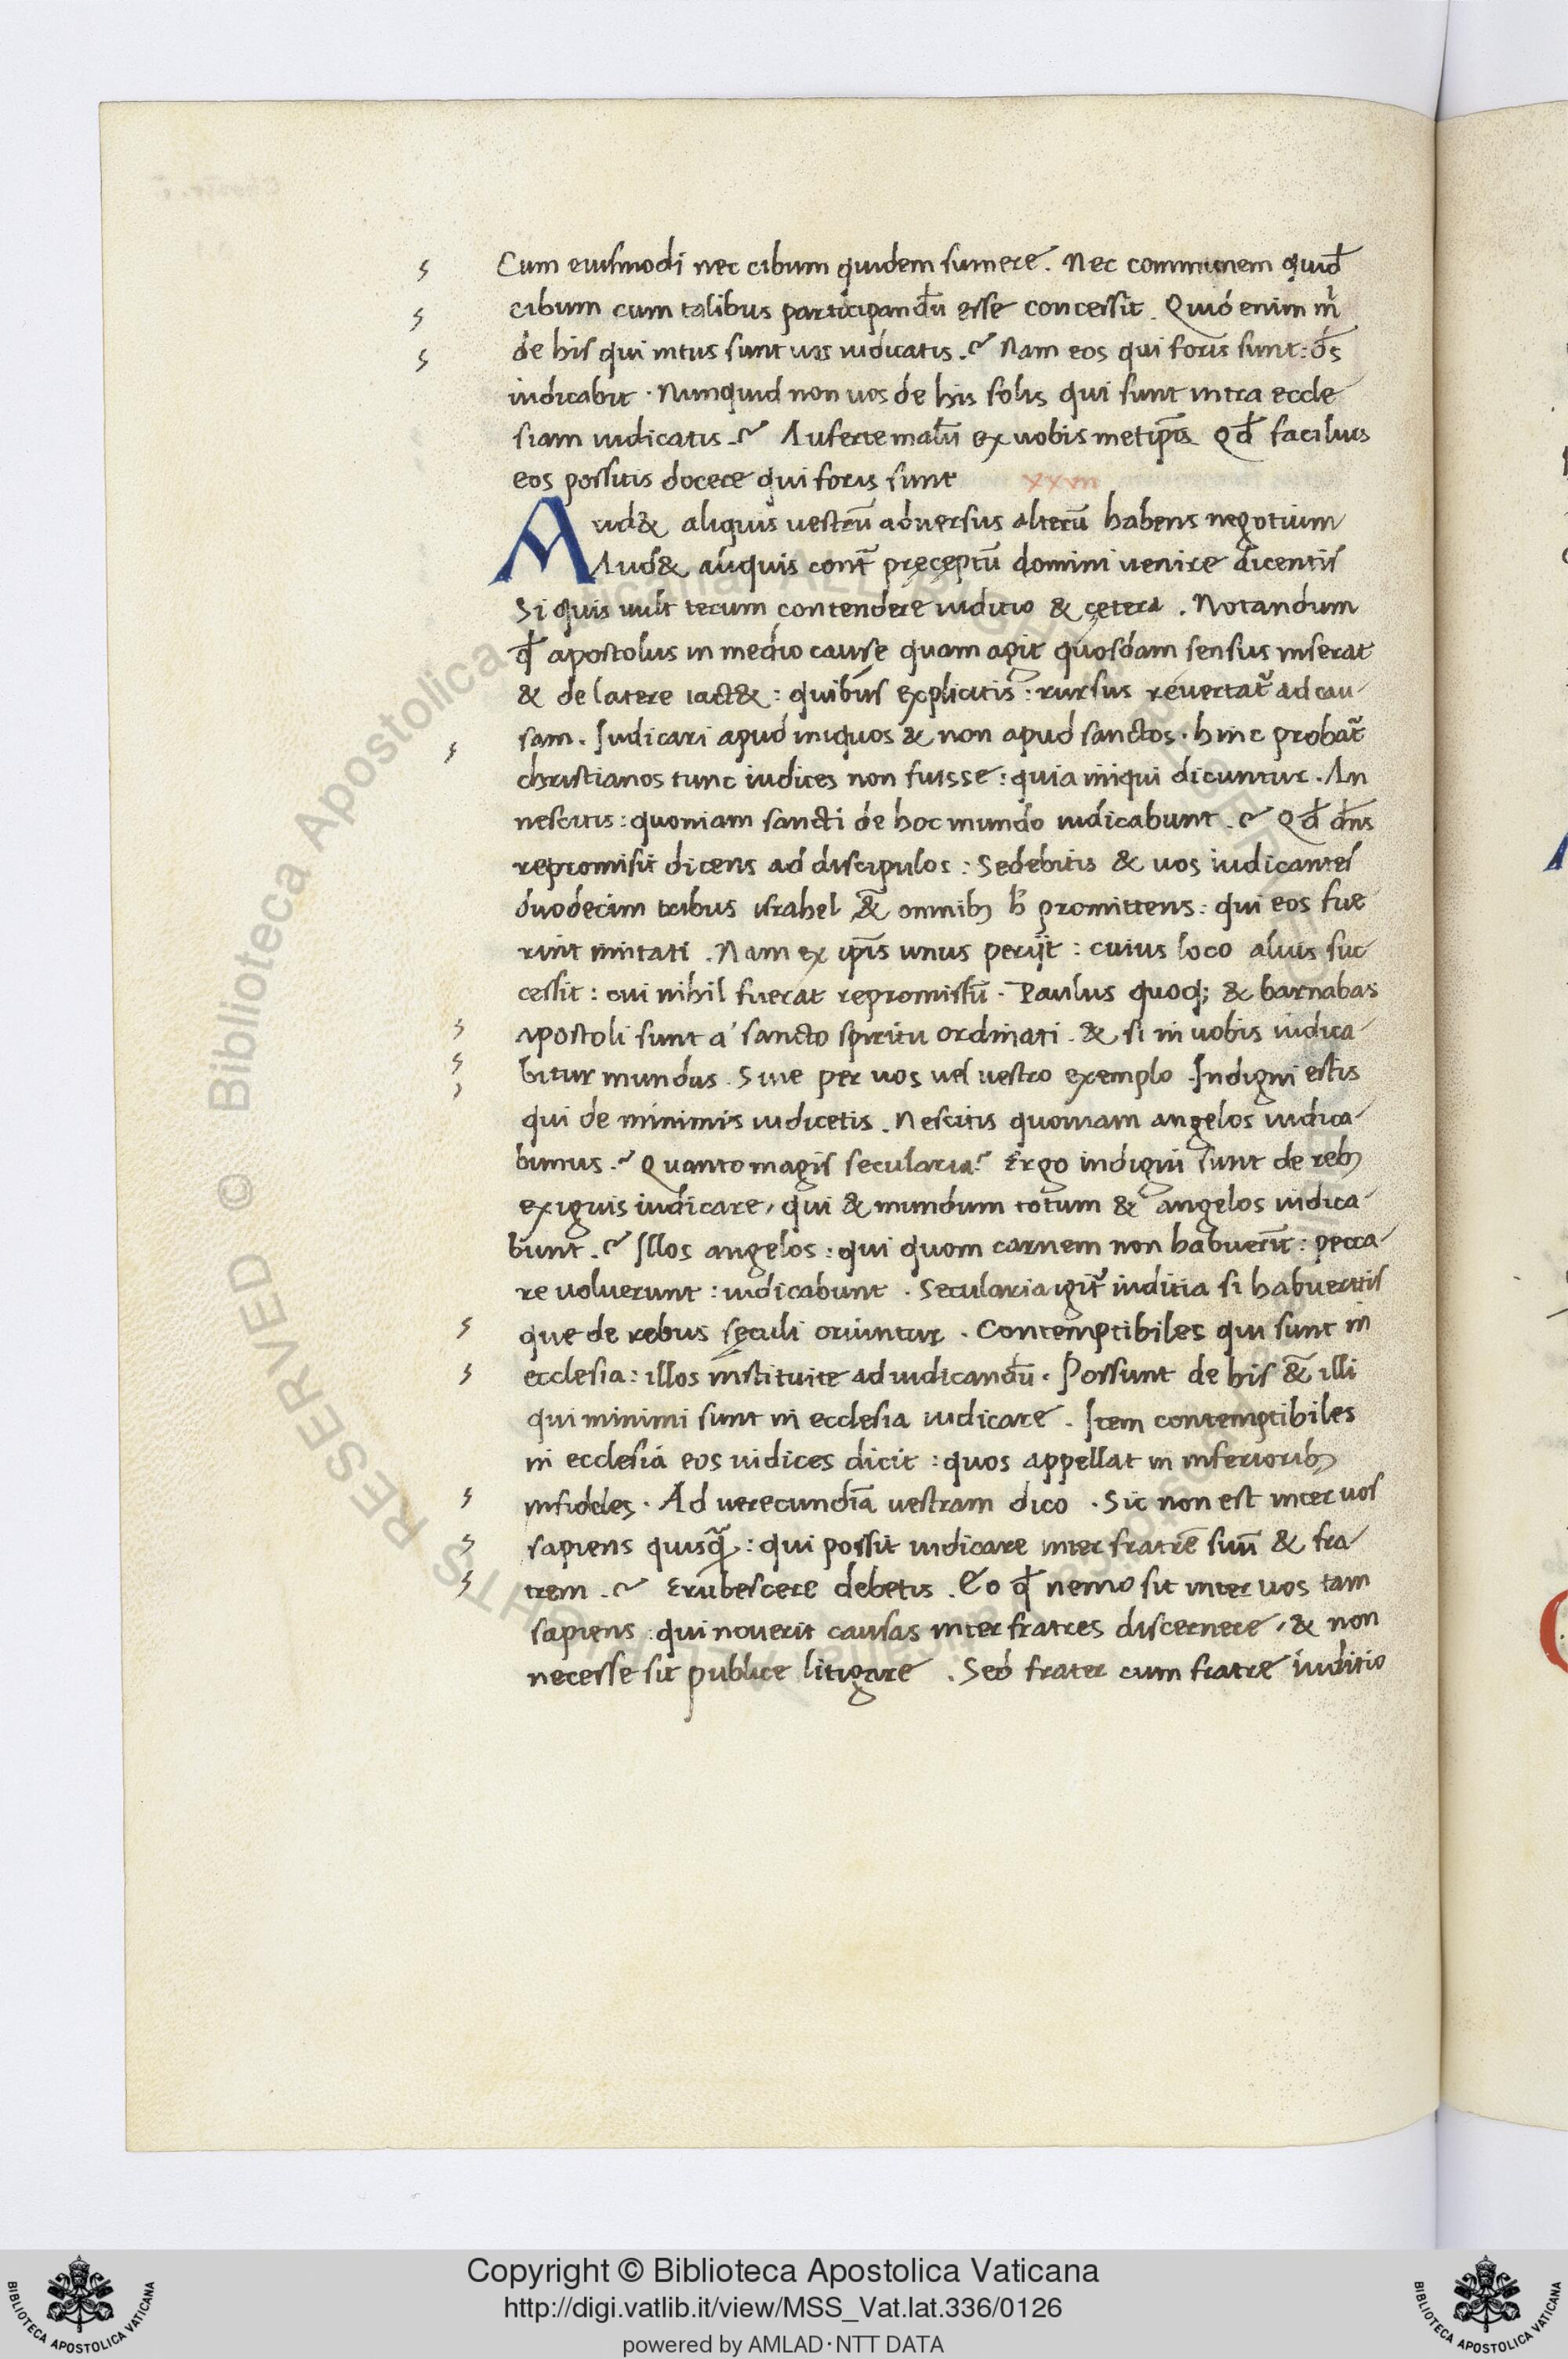 Cum eiusmodi nec cibum quidem sumere. Nec communem quid̄
cibum cum talibus participandū esse concessit. Quid enim m̄
de his qui intus sunt uos iudicatis.? Nam eos qui foris sunt: d̄s
iudicabit. Nunquid non uos de his solis qui sunt intra eccle
siam iudicatis.? Auferte malū ex uobis metip̄is. Qd̄ facilius
eos possitis docere qui foris sunt
xxvii
Aud& aliquis uestrū aduersus alterū habens negotium
Aud& aliquis cont̄ pręceptū domini uenire dicentis
Si quis uult tecum contendere iuditio & cętera. Notandum
q̄d apostolus in medio cause quam agit quosdam sensus inserat
& de latere iact&: quibus explicitis: rursus reuertat̄ ad cau
sam. Iudicari apud iniquos & non apud sanctos. hinc probat̄
christianos tunc iudices non fuisse: quia iniqui dicuntur. An
nescitis: quoniam sancti de hoc mundo iudicabunt.? Qd̄ dn̄s
repromisit dicens ad discipulos: Sedebitis & uos iudicantes
duodecim tribus israhel &̄ omnib; h̄ promittens: qui eos fue
rint imitati. Nam ex ip̄is unus perijt: cuius loco alius suc
cessit: cui nihil fuerat repromissū. Paulus quoq; & barnabas
apostoli sunt a' sancto spiritu ordinati. & si in uobis iudica
bitur mundus. Siue per uos uel uestro exemplo. Indigni estis
qui de minimis iudicetis. Nescitis quoniam angelos iudica
bimus.? Quanto magis secularia? Ergo indigni sunt de reb;
exiguis iudicare, qui & mundum totum & angelos iudica
bunt.? Illos angelos: qui quom carnem non habuerīt: pecca
re uoluerunt: iudicabunt. Secularia igit̄ iuditia si habueritis
que de rebus sęculi oriuntur. Contemptibiles qui sunt in
ecclesia: illos instituite ad iudicandū. Possunt de his &̄ illi
qui minimi sunt in ecclesia iudicare. Item contemptibiles
in ecclesia eos iudices dicit: quos appellat in inferiorib;
infideles. Ad uerecundiā uestram dico. Sic non est inter uos
sapiens quisq̄: qui possit iudicare inter fratrē suū & fra
trem.? Erubescere debetis. Eo q̄d nemo sit inter uos tam
sapiens: qui nouerit causas inter fratres discernere, & non
necesse sit publice litigare. Sed frater cum fratre iuditio
Biblioteca Apostolica Vaticana ALL RIGHTS RESERVED ©
Copyright © Biblioteca Apostolica Vaticana
http://digi.vatlib.it/view/MSS_Vat.lat.336/0126
powered by AMLAD·NTT DATA
BIBLIOTECA APOSTOLICA VATICANA
BIBLIOTECA APOSTOLICA VATICANA